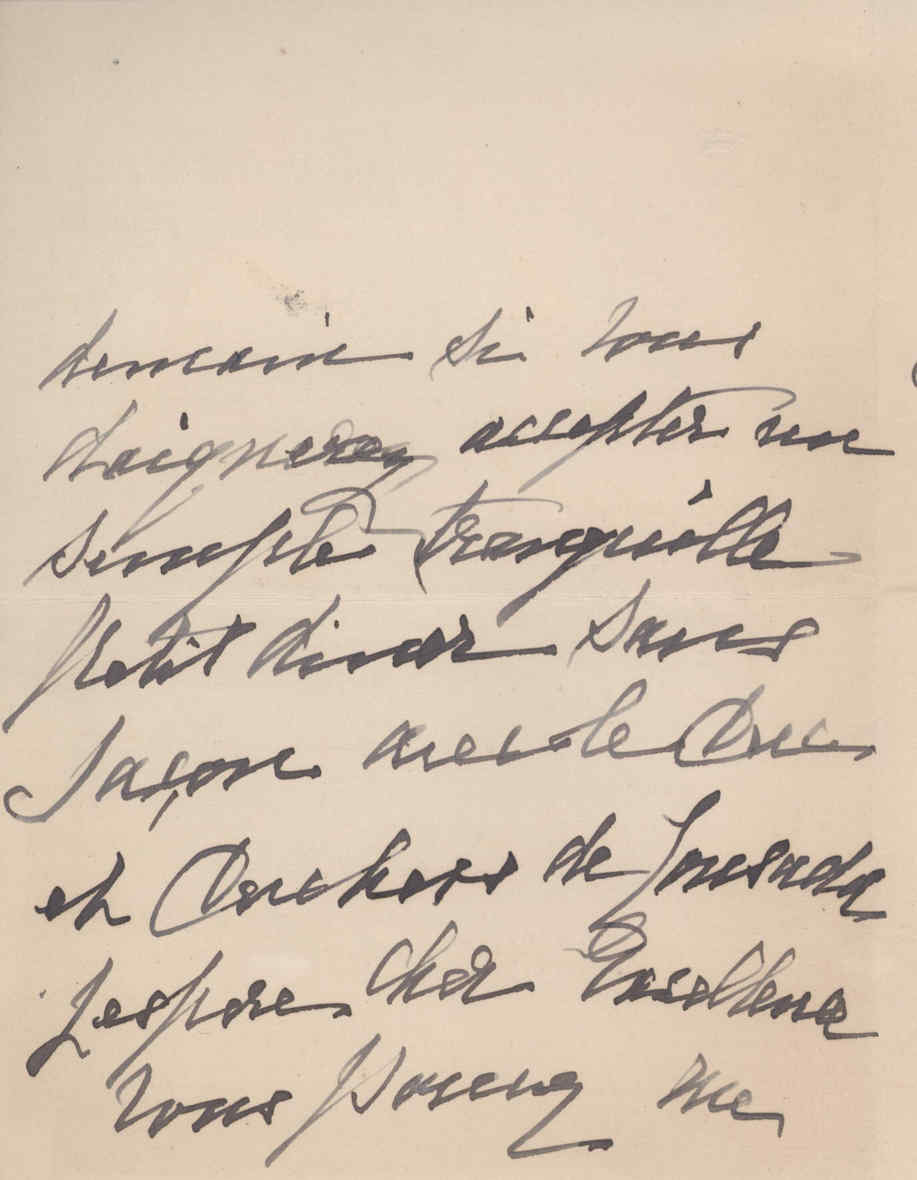 demain si vous
daignerez accepter un
simple tranquille
petit diner sans
façon avec le Duc
et Duchess de Lousada
J'espère cher Excellence
vous pouvez me